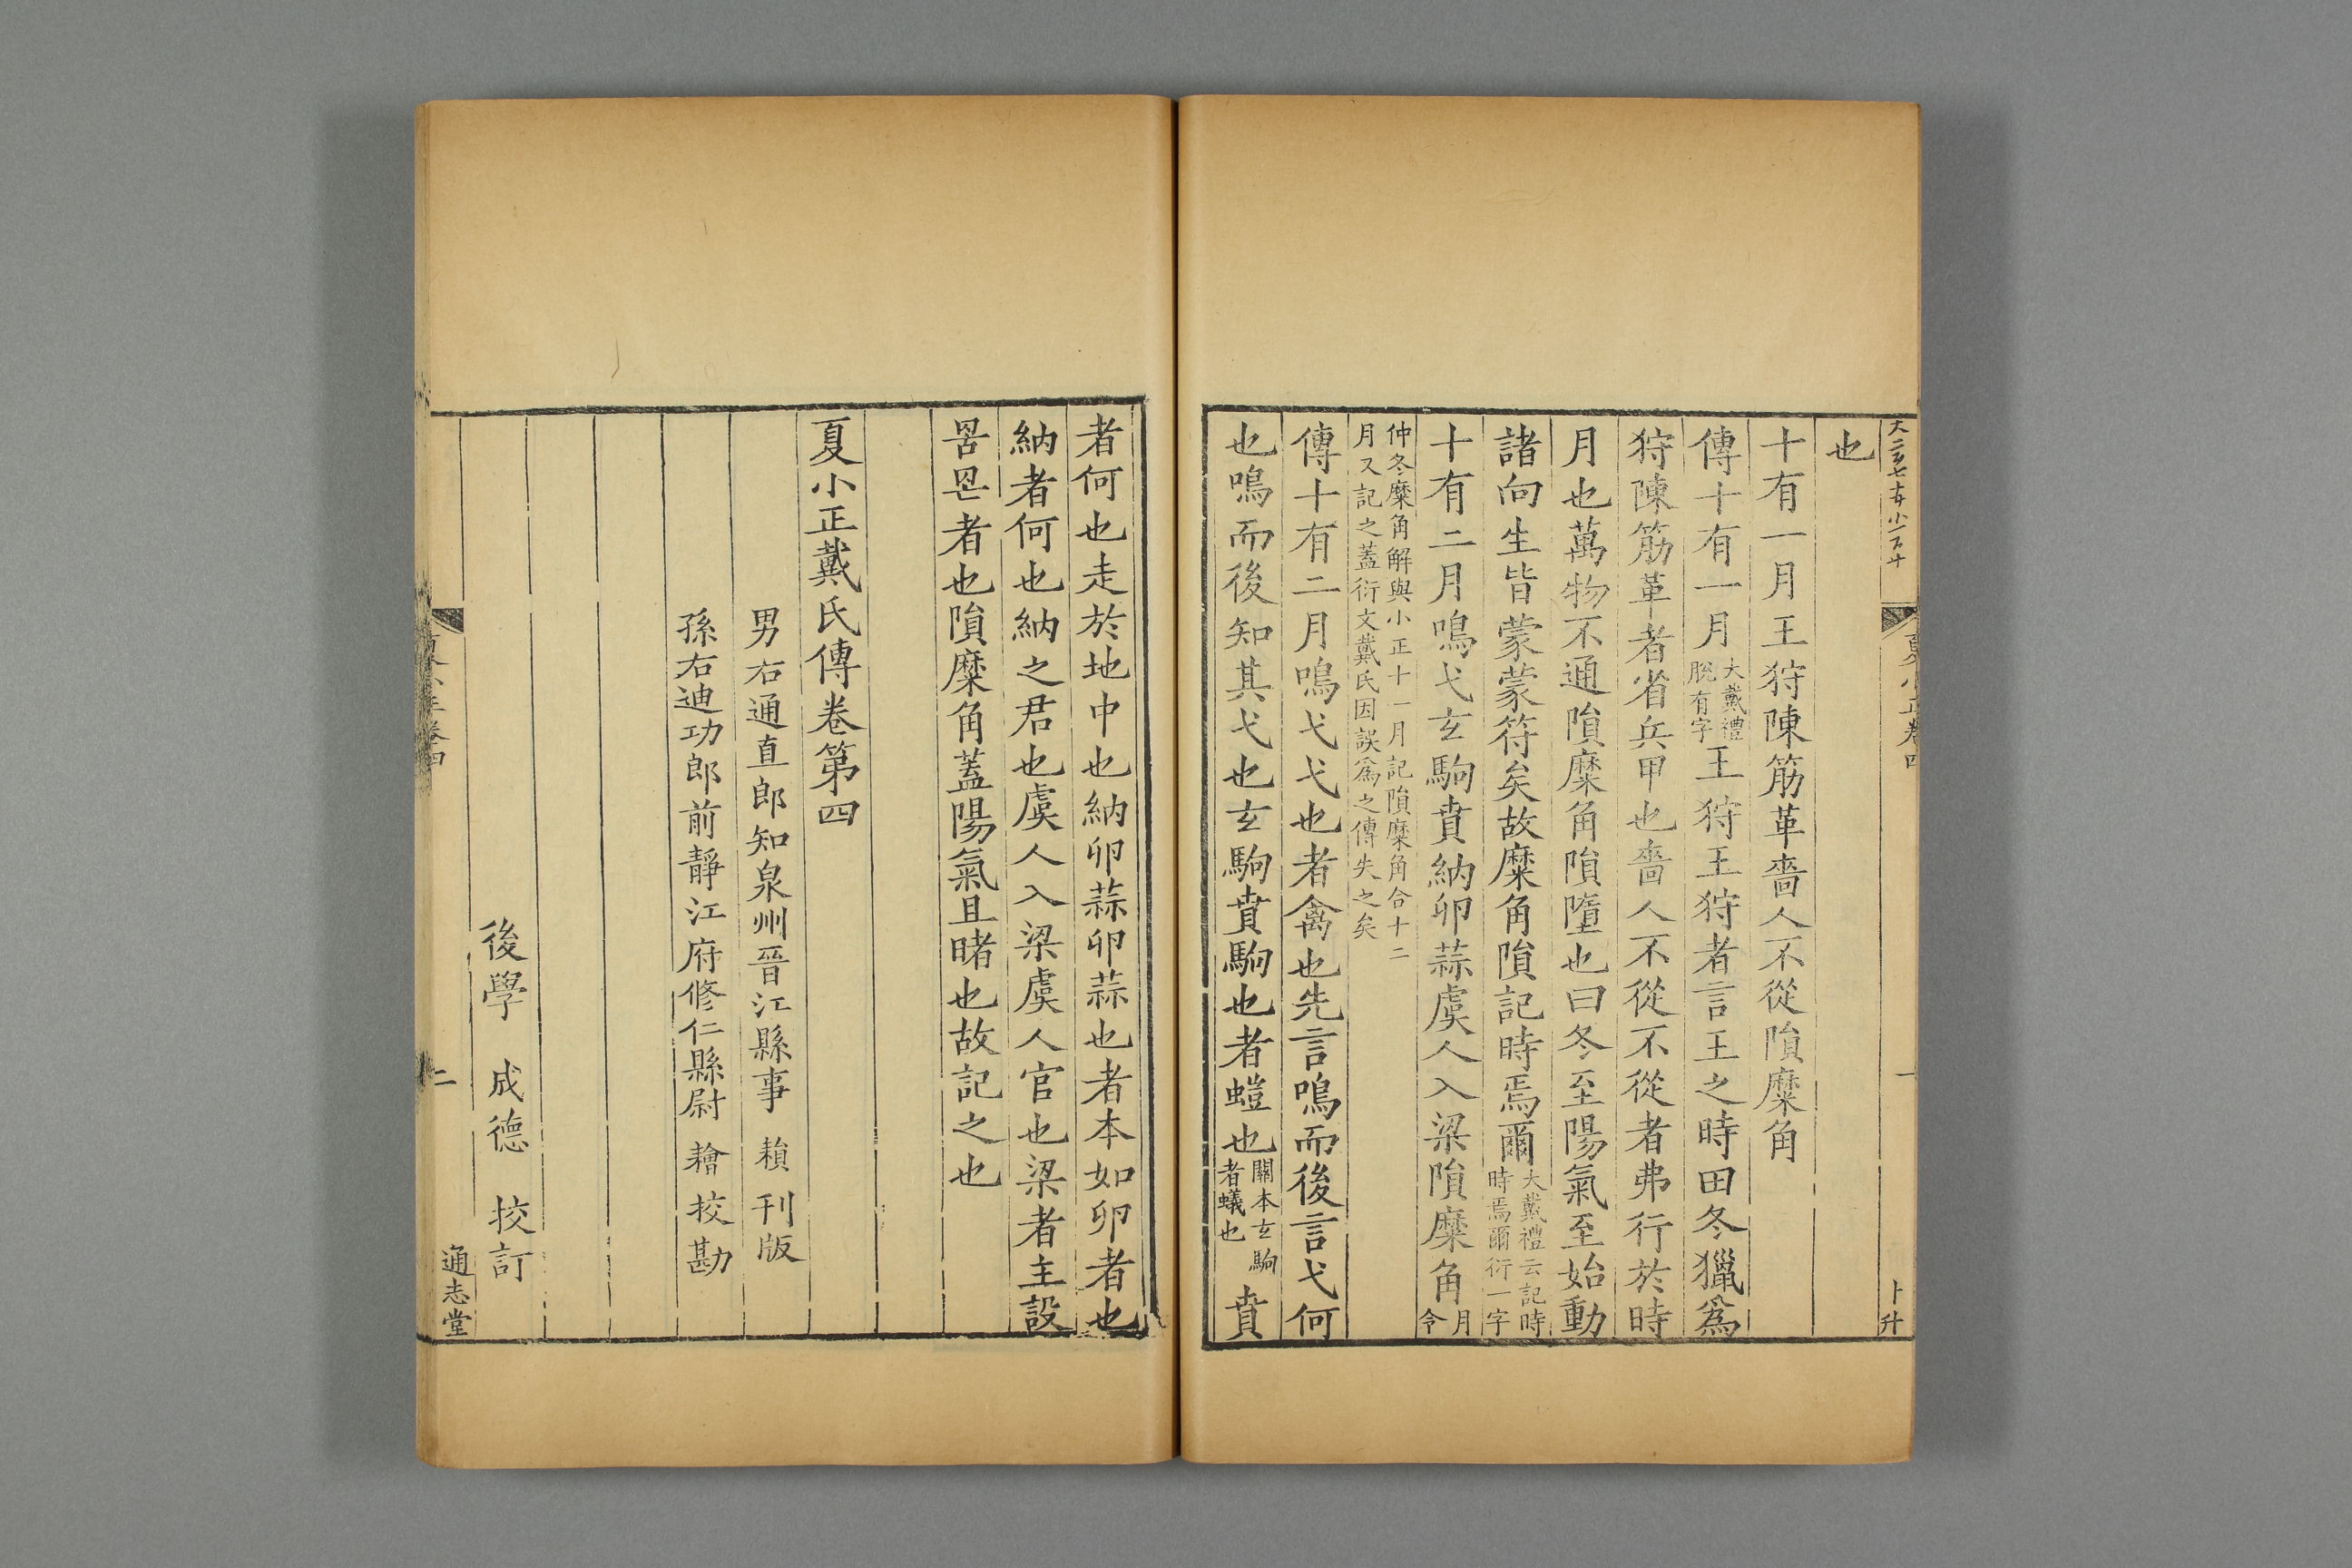 夏小正卷四
一
卜升
也
十有一月王狩陳筋革嗇人不從隕麋角
傳十有一月大戴禮脫有字王狩王狩者言王之時田冬獵爲
狩陳筋革者省兵甲也嗇人不從不從者弗行於時
月也萬物不通隕麋角隕墮也曰冬至陽氣至始動
諸向生皆蒙蒙符矣故麋角隕記時焉爾大戴禮云記時時焉爾衍一字
十有二月鳴弋玄駒賁納卵蒜虞人入梁隕麋角月令
仲冬麋角解與小正十一月記隕麋角合十二
月又記之蓋衍文戴氏因誤爲之傳失之矣
傳十有二月鳴弋弋也者禽也先言鳴而後言弋何
也鳴而後知其弋也玄駒賁駒也者螘也關本玄駒者蟻也賁
者何也走於地中也納卵蒜卵蒜也者本如卵者也
納者何也納之君也虞人入梁虞人官也梁者主設
罟罟者也隕麋角蓋陽氣且睹也故記之也
夏小正戴氏傳卷第四
男右通直郎知泉州晉江縣事 頛 刊版
孫右迪功郎前靜江府修仁縣尉 檜 挍勘
後學 成德 挍訂
夏小正卷四
二
通志堂